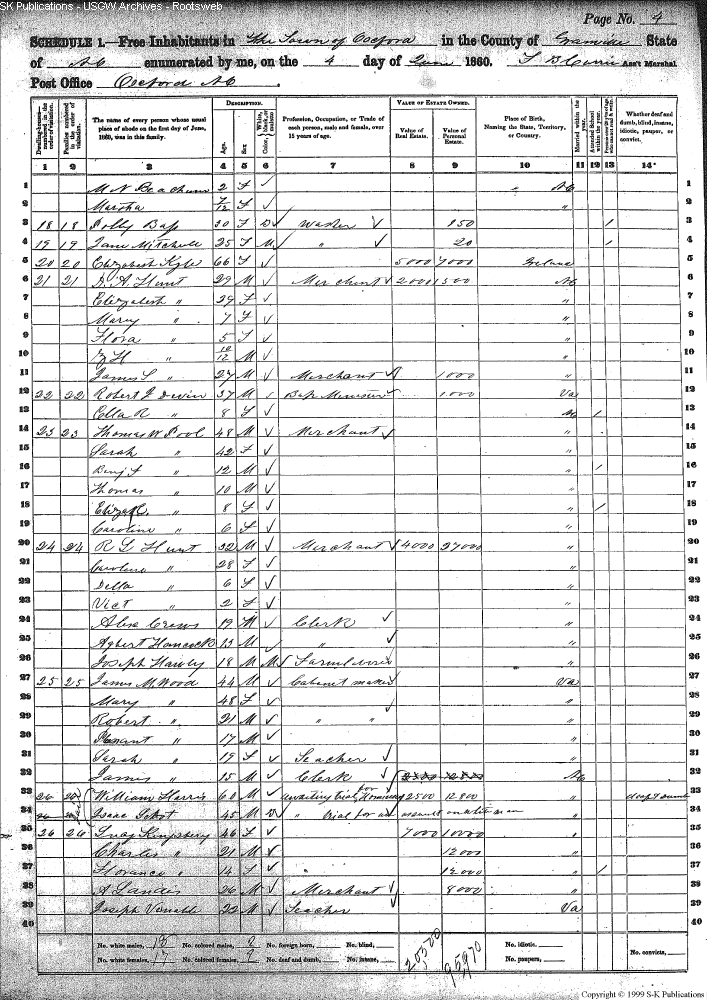 SK Publications - USGW Archives - Rootsweb
Page No. 4
SCHEDULE 1.—Free Inhabitants in The Town of Oxford in the County of Granville State
of NC enumerated by me, on the 4 day of June 1860. Ass't Marshal
Post Office Oxford NC
Dwelling-houses numbered in the order of visitation. Families numbered in the order of visitation. The name of every person whose usual place of abode on the first day of June, 1860, was in this family. DESCRIPTION. Age. Sex. Color, Profession, Occupation, or Trade of each person, male and female, over 15 years of age. VALUE OF ESTATE OWNED. Value of Real Estate. Value of Personal Estate. Place of Birth, Naming the State, Territory, or Country. Married within the year. Attended School within the year. Whether deaf and dumb, blind, insane, idiotic, pauper, or convict.
1 2 3 4 5 6 7 8 9 10 11 12 13 14
1 2 F NC 1
2 Martha 7/12 F " 2
3 18 18 Polly Bass 30 F Washer 150 / 3
4 19 19 Jane Mitchell 25 F M " 20 / 4
5 20 20 Elizabeth Kyle 66 F 5000 7000 Ireland 5
6 21 21 D. A. Hunt 29 M Merchant 2000 1500 NC 6
7 Elizabeth " 29 F " 7
8 Mary " 7 F " 8
9 Flora " 5 F " 9
10 " 10/12 M " 10
11 James S " 27 M Merchant 1000 " 11
12 22 22 Robert I Devin 37 M Bap Minister 1000 Va 12
13 Ella R " 8 F NC / 13
14 23 23 Thomas W Pool 48 M Merchant " 14
15 Sarah " 42 F " 15
16 Benj F " 12 M " / 16
17 Thomas " 10 M " 17
18 Elizabh " 8 F " / 18
19 Caroline " 6 F " 19
20 24 24 R L Hunt 32 M Merchant 4000 27000 " 20
21 Caroline " 28 F " 21
22 Della " 6 F " 22
23 Vict " 2 F " 23
24 Alex Crews 19 M Clerk " 24
25 Hancock 13 M " " 25
26 Joseph Hawley 18 M M " 26
27 25 25 James M Wood 44 M Cabinet maker Va 27
28 Mary " 48 F " 28
29 Robert " 21 M " " " 29
30 " 17 M " 30
31 Sarah " 19 F Teacher " 31
32 James " 15 M Clerk NC 32
33 William Harris 60 M Awaiting trial for 2500 12800 " deaf & dumb 33
34 Isaac 45 M " trial for an assault on white man 34
35 26 26 Kingsbury 46 F 7000 10000 " 35
36 Charles " 21 M 12000 " 36
37 Florance " 14 F " 12000 " / 37
38 A Landis 26 M Merchant 8000 " 38
39 Joseph Venable 22 M Teacher Va 39
40 40
No. white males, 18 No. colored males, 2 No. foreign born, No. blind, 20500 95970 No. idiotic, No. convicts,
No. white females, 17 No. colored females, 2 No. deaf and dumb, No. insane, No. paupers,
Copyright © 1999 S-K Publications